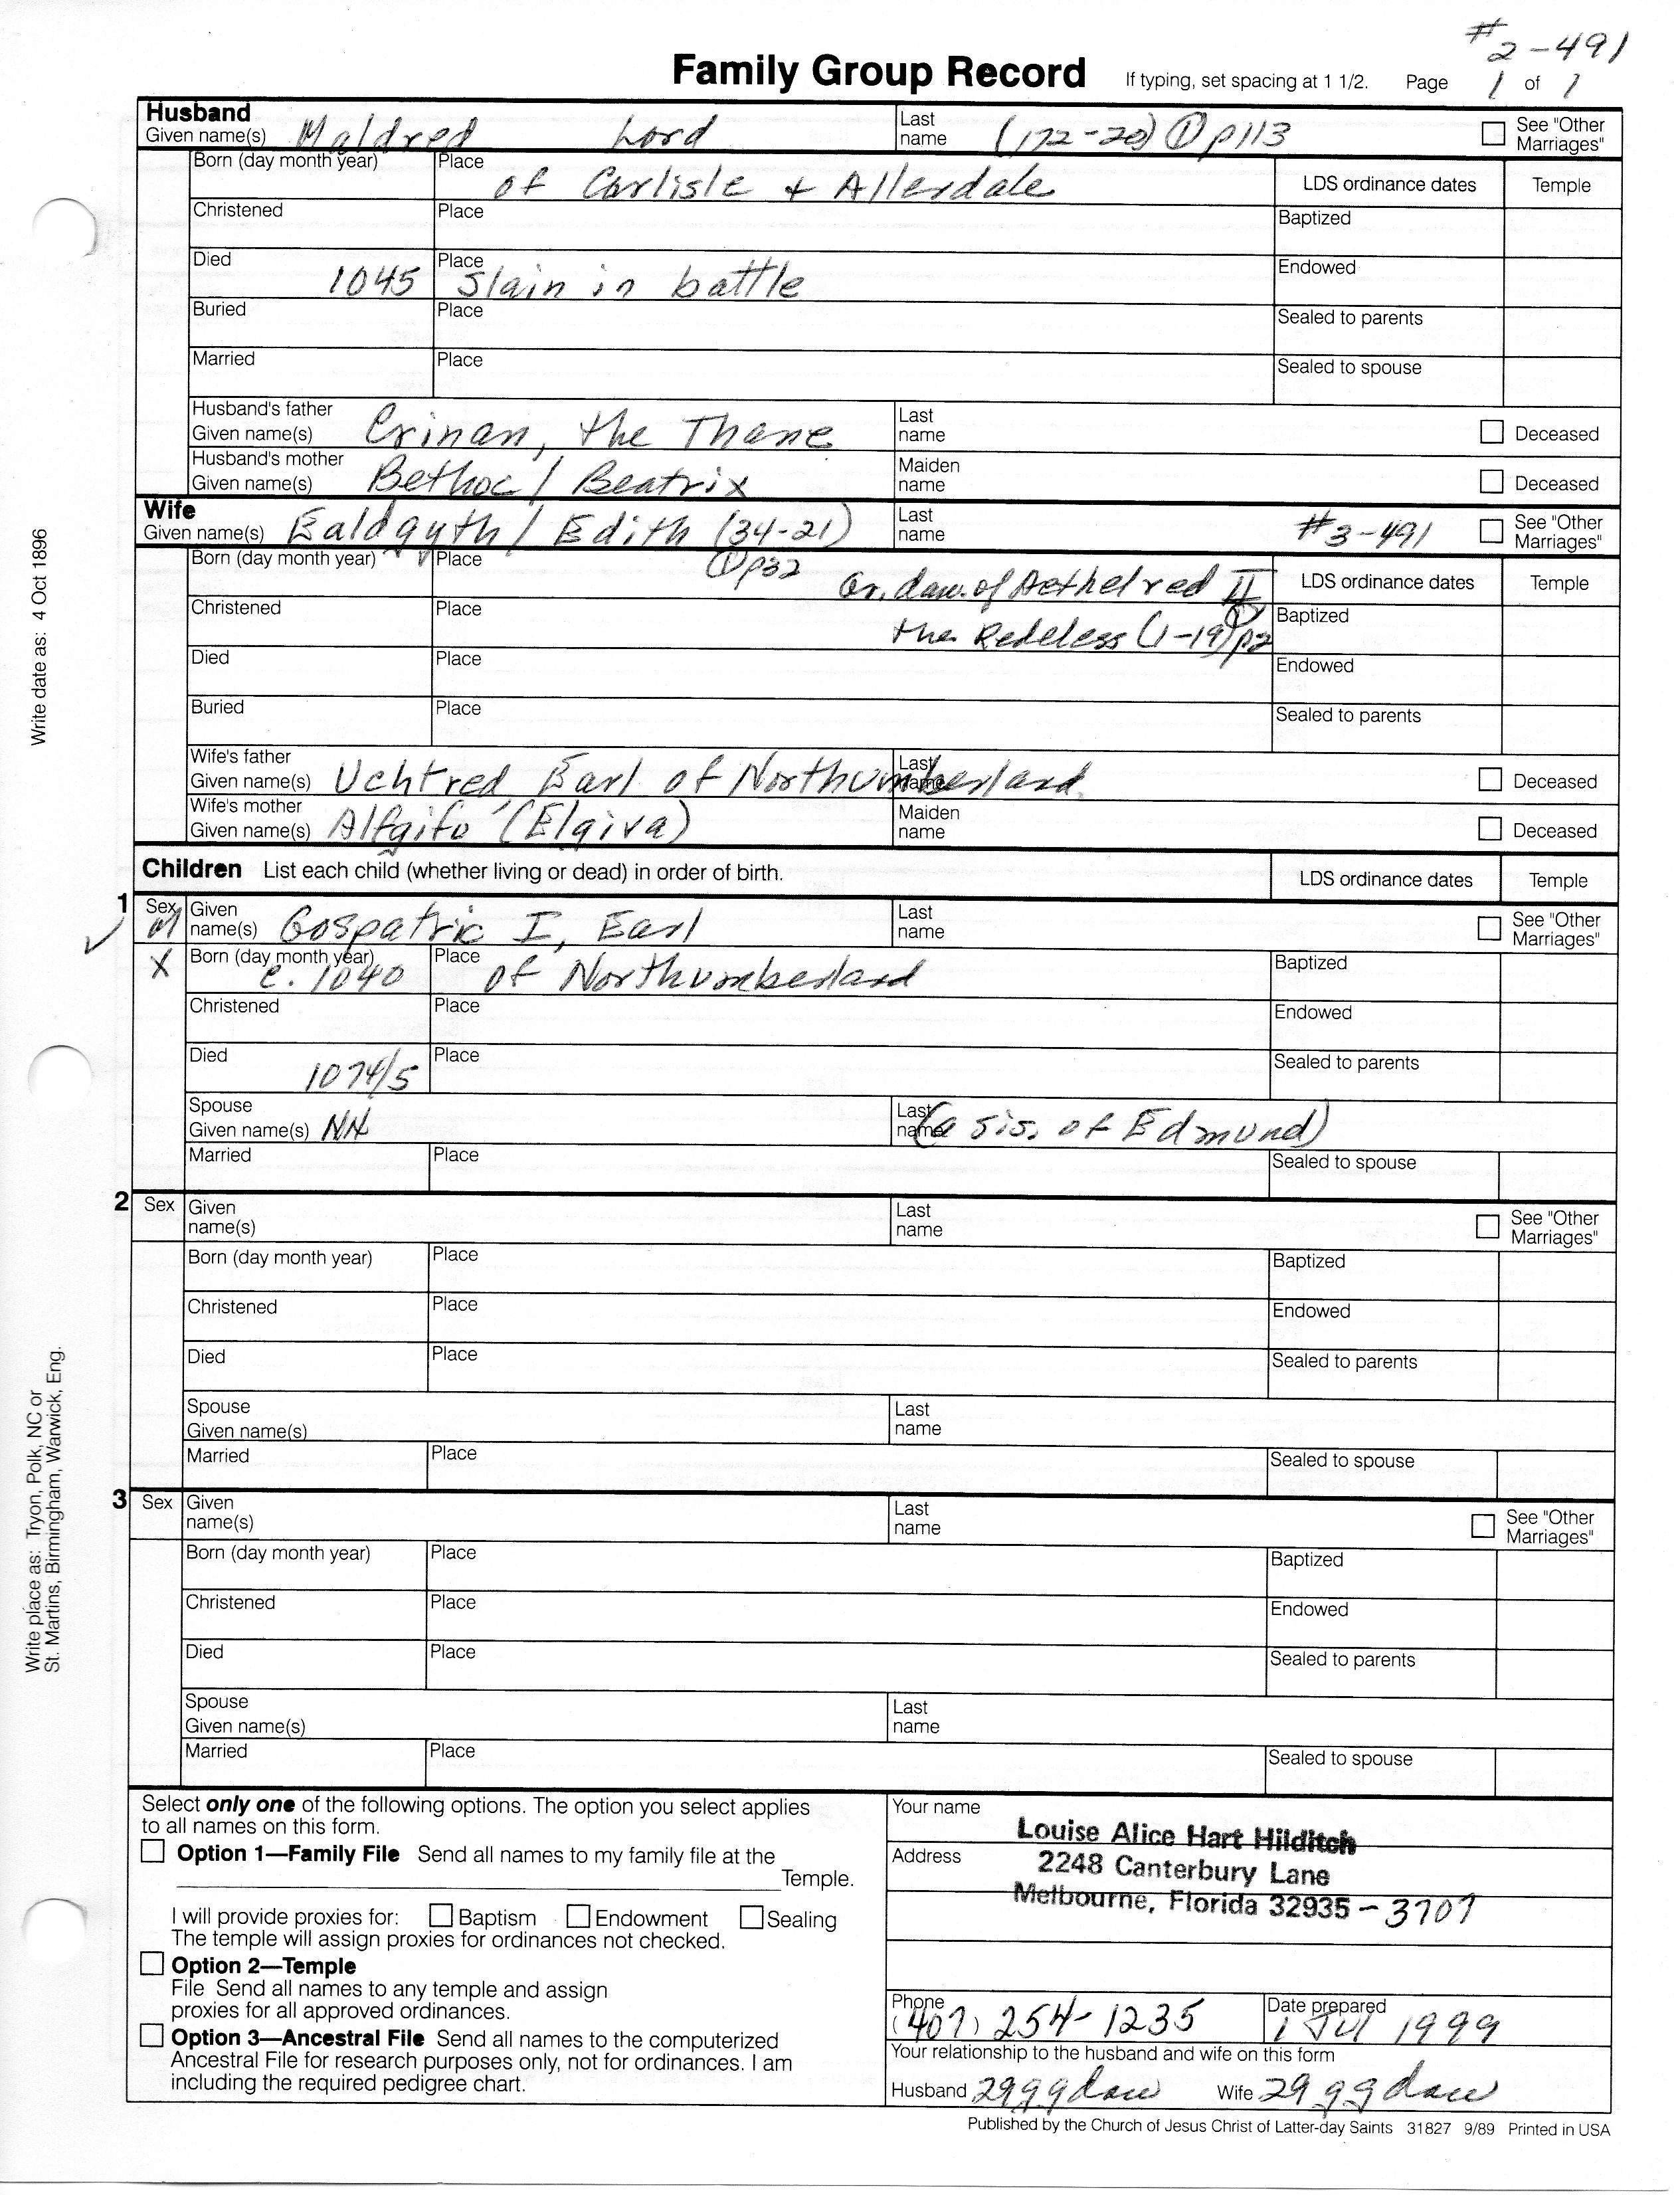 #2-491
Family Group Record If typing, set spacing at 1 1/2. Page 1 of 1
Husband
Given name(s) Maldred Lord Last name (172-20) ① p113 See "Other Marriages"
Born (day month year) Place of Carlisle + Allerdale LDS ordinance dates Temple
Christened Place Baptized
Died 1045 Place Slain in battle Endowed
Buried Place Sealed to parents
Married Place Sealed to spouse
Husband's father Given name(s) Crinan, the Thane Last name Deceased
Husband's mother Given name(s) Bethoc / Beatrix Maiden name Deceased
Wife
Given name(s) Ealdgyth / Edith (34-21) Last name #3-491 See "Other Marriages"
Born (day month year) Place ① p32 Gr. dau. of Aethelred II LDS ordinance dates Temple
Christened Place the Redeless (1-19) ① p2 Baptized
Died Place Endowed
Buried Place Sealed to parents
Wife's father Given name(s) Uchtred Earl of Northumberland Last name Deceased
Wife's mother Given name(s) Alfgifu (Elgiva) Maiden name Deceased
Children List each child (whether living or dead) in order of birth. LDS ordinance dates Temple
1 Sex M Given name(s) Gospatric I, Earl Last name See "Other Marriages"
X Born (day month year) c. 1040 Place of Northumberland Baptized
Christened Place Endowed
Died 1074/5 Place Sealed to parents
Spouse Given name(s) NN Last name (a sis. of Edmund)
Married Place Sealed to spouse
2 Sex Given name(s) Last name See "Other Marriages"
Born (day month year) Place Baptized
Christened Place Endowed
Died Place Sealed to parents
Spouse Given name(s) Last name
Married Place Sealed to spouse
3 Sex Given name(s) Last name See "Other Marriages"
Born (day month year) Place Baptized
Christened Place Endowed
Died Place Sealed to parents
Spouse Given name(s) Last name
Married Place Sealed to spouse
Write date as: 4 Oct 1896
Write place as: Tryon, Polk, NC or
St. Martins, Birmingham, Warwick, Eng.
Select only one of the following options. The option you select applies
to all names on this form.
Option 1—Family File Send all names to my family file at the
Temple.
I will provide proxies for: Baptism Endowment Sealing
The temple will assign proxies for ordinances not checked.
Option 2—Temple
File Send all names to any temple and assign
proxies for all approved ordinances.
Option 3—Ancestral File Send all names to the computerized
Ancestral File for research purposes only, not for ordinances. I am
including the required pedigree chart.
Your name Louise Alice Hart Hilditch
Address 2248 Canterbury Lane
Melbourne, Florida 32935-3707
Phone (407) 254-1235 Date prepared 1 Jul 1999
Your relationship to the husband and wife on this form
Husband 29 gg dau Wife 29 gg dau
Published by the Church of Jesus Christ of Latter-day Saints 31827 9/89 Printed in USA